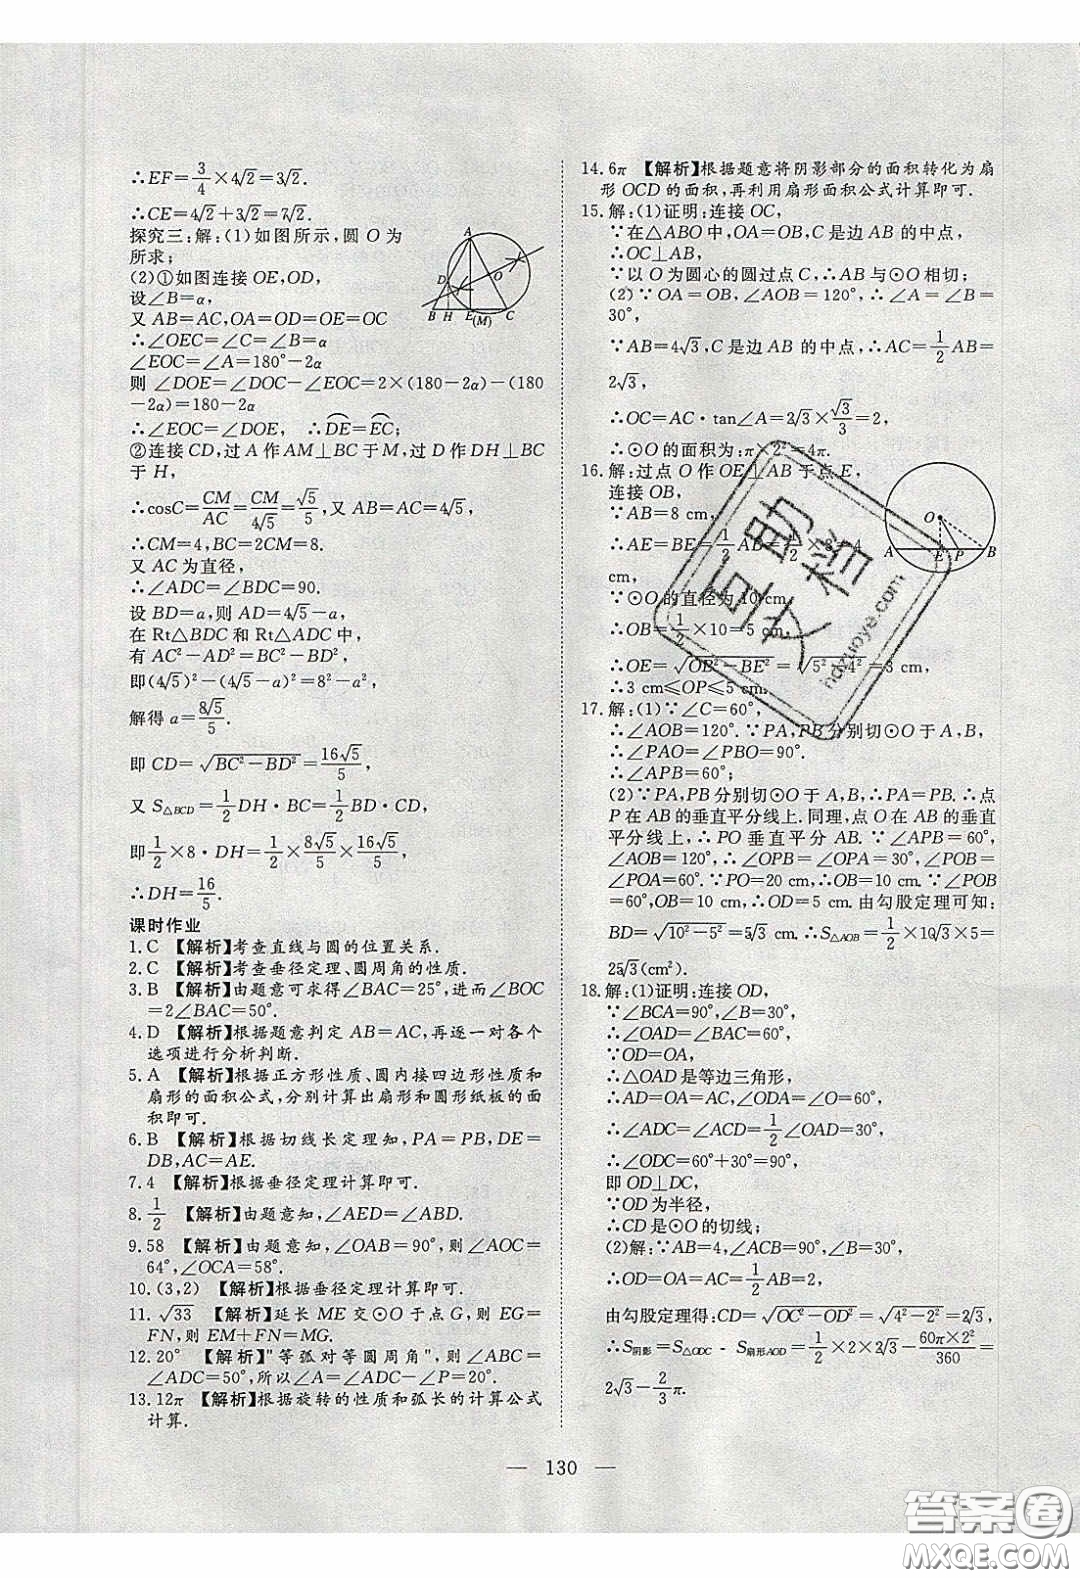 ∴EF=3/4×4√2=3√2.
∴CE=4√2+3√2=7√2.
探究三:解:(1)如图所示,圆 O 为
所求;
(2)①如图连接 OE,OD,
设∠B=α,
又 AB=AC,OA=OD=OE=OC
∴∠OEC=∠C=∠B=α
∠EOC=∠A=180°-2α
则 ∠DOE=∠DOC-∠EOC=2×(180-2α)-(180
-2α)=180-2α
∴∠EOC=∠DOE, ∴DE⌒=EC⌒;
②连接 CD,过 A 作 AM⊥BC 于 M,过 D 作 DH⊥BC
于 H,
∴cosC=CM/AC=CM/4√5=√5/5,又 AB=AC=4√5,
∴CM=4,BC=2CM=8.
又 AC 为直径,
∴∠ADC=∠BDC=90.
设 BD=a,则 AD=4√5-a,
在 Rt△BDC 和 Rt△ADC 中,
有 AC²-AD²=BC²-BD²,
即(4√5)²-(4√5-a)²=8²-a²,
解得 a=8√5/5.
即 CD=√(BC²-BD²)=16√5/5,
又 S△BCD=1/2 DH·BC=1/2 BD·CD,
即1/2×8·DH=1/2×8√5/5×16√5/5,
∴DH=16/5.
课时作业
1.C 【解析】考查直线与圆的位置关系.
2.C 【解析】考查垂径定理、圆周角的性质.
3.B 【解析】由题意可求得∠BAC=25°,进而∠BOC
=2∠BAC=50°.
4.D 【解析】根据题意判定 AB=AC,再逐一对各个
选项进行分析判断.
5.A 【解析】根据正方形性质、圆内接四边形性质和
扇形的面积公式,分别计算出扇形和圆形纸板的面
积即可.
6.B 【解析】根据切线长定理知,PA=PB,DE=
DB,AC=AE.
7.4 【解析】根据垂径定理计算即可.
8.1/2 【解析】由题意知,∠AED=∠ABD.
9.58 【解析】由题意知,∠OAB=90°,则∠AOC=
64°,∠OCA=58°.
10.(3,2) 【解析】根据垂径定理计算即可.
11.√33 【解析】延长 ME 交⊙O 于点 G,则 EG=
FN,则 EM+FN=MG.
12.20° 【解析】"等弧对等圆周角",则∠ABC=
∠ADC=50°,所以∠A=∠ADC-∠P=20°.
13.12π 【解析】根据旋转的性质和弧长的计算公式
计算.
A
D
O
B H E C
(M)
14.6π 【解析】根据题意将阴影部分的面积转化为扇
形 OCD 的面积,再利用扇形面积公式计算即可.
15.解:(1)证明:连接 OC,
∵在△ABO 中,OA=OB,C 是边 AB 的中点,
∴OC⊥AB,
∵以 O 为圆心的圆过点 C,∴AB与⊙O 相切;
(2)∵OA=OB,∠AOB=120°,∴∠A=∠B=
30°,
∵AB=4√3,C 是边 AB 的中点,∴AC=1/2 AB=
2√3,
∴OC=AC·tan∠A=2√3×√3/3=2,
∴⊙O 的面积为:π×2²=4π.
16.解:过点 O 作 OE⊥AB 于点 E,
连接 OB,
∵AB=8 cm,
∴AE=BE=1/2 AB=1/2×8=4
cm,
∵⊙O 的直径为 10 cm,
∴OB=1/2×10=5 cm,
∴OE=√(OB²-BE²)=√(5²-4²)=3 cm,
∴3 cm≤OP≤5 cm.
O
A E P B
17.解:(1)∵∠C=60°,
∴∠AOB=120°.∵PA,PB 分别切⊙O 于 A,B,
∴∠PAO=∠PBO=90°.
∴∠APB=60°;
(2)∵PA,PB 分别切⊙O 于 A,B,∴PA=PB.∴点
P 在 AB 的垂直平分线上.同理,点 O 在 AB 的垂直
平分线上,∴PO 垂直平分 AB.∵∠APB=60°,
∠AOB=120°,∴∠OPB=∠OPA=30°,∠POB=
∠POA=60°.∵PO=20 cm,∴OB=10 cm.∵∠POB
=60°,OB=10 cm,∴OD=5 cm.由勾股定理可知:
BD=√(10²-5²)=5√3 cm.∴S△AOB=1/2×10√3×5=
25√3(cm²).
18.解:(1)证明:连接 OD,
∵∠BCA=90°,∠B=30°,
∴∠OAD=∠BAC=60°,
∵OD=OA,
∴△OAD 是等边三角形,
∴AD=OA=AC,∠ODA=∠O=60°,
∴∠ADC=∠ACD=1/2∠OAD=30°,
∴∠ODC=60°+30°=90°,
即 OD⊥DC,
∵OD 为半径,
∴CD 是⊙O 的切线;
(2)解:∵AB=4,∠ACB=90°,∠B=30°,
∴OD=OA=AC=1/2 AB=2,
由勾股定理得:CD=√(OC²-OD²)=√(4²-2²)=2√3,
∴S阴影=S△ODC - S扇形AOD=1/2×2×2√3-60π×2²/360=
2√3-2/3π.
互助文档
hdzuoye.com
— 130 —
答案圈
MXQE.COM